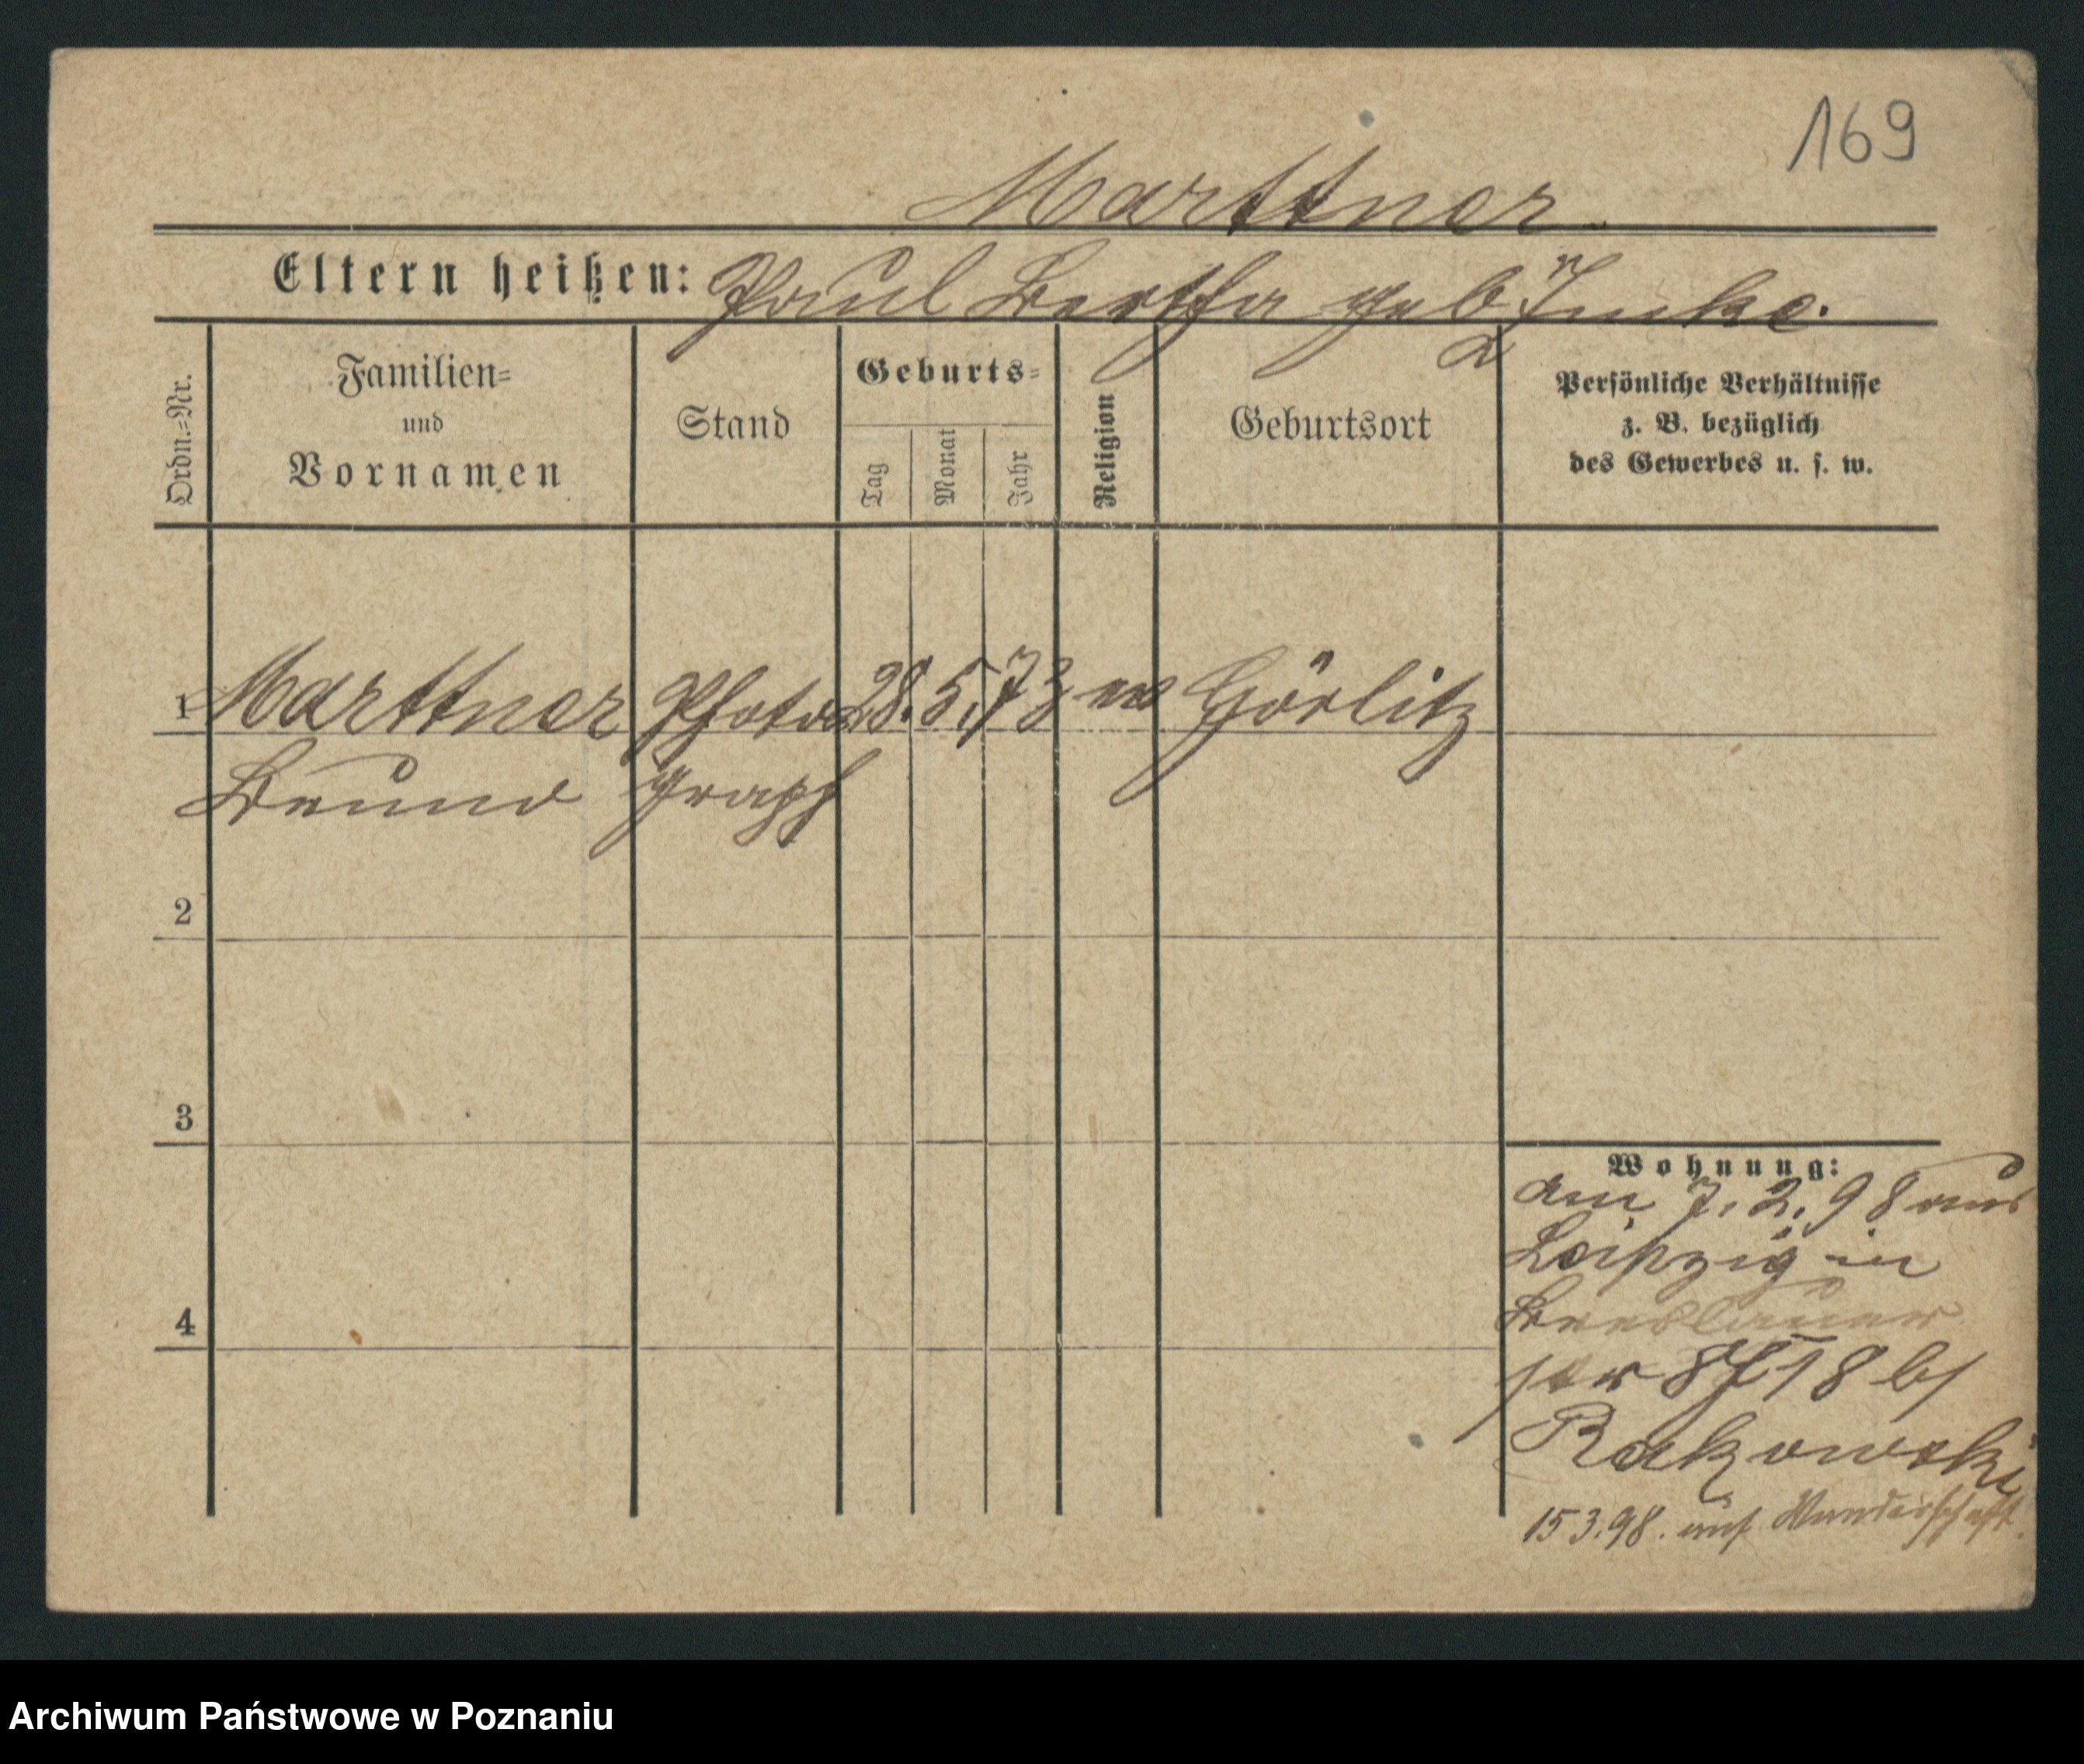 169
Marttner
Eltern heißen: Paul Bertha geb
Ordn.=Nr.
Familien=
und
Vornamen
Stand
Geburts=
Tag
Monat
Jahr
Religion
Geburtsort
Persönliche Verhältnisse
z. B. bezüglich
des Gewerbes u. s. w.
1 Marttner Photo 28. 5. 73 ev Görlitz
Bruno graph
2
3
4
Wohnung:
am 7. 2. 98 aus
Leipzig in
Breslauer
18 b/
Rakowski
15 3. 98. auf Wanderschaft.
Archiwum Państwowe w Poznaniu